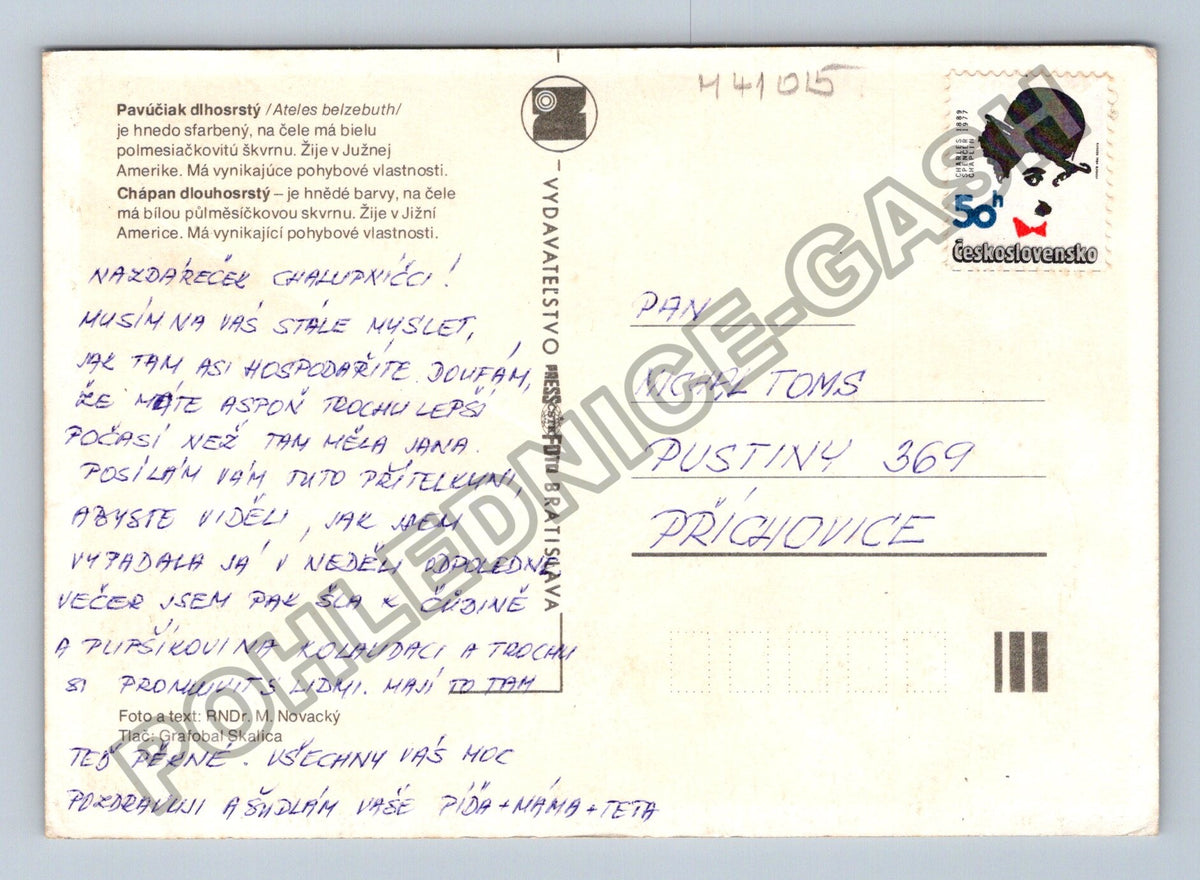 M 41015
Pavúčiak dlhosrstý /Ateles belzebuth/
je hnedo sfarbený, na čele má bielu
polmesiačkovitú škvrnu. Žije v Južnej
Amerike. Má vynikajúce pohybové vlastnosti.
Chápan dlouhosrstý – je hnědé barvy, na čele
má bílou půlměsíčkovou skvrnu. Žije v Jižní
Americe. Má vynikající pohybové vlastnosti.
NAZDÁREČEK CHALUPNÍČCI!
MUSÍM NA VÁS STÁLE MYSLET,
JAK TAM ASI HOSPODAŘÍTE. DOUFÁM,
ŽE MÁTE ASPOŇ TROCHU LEPŠÍ
POČASÍ NEŽ TAM MĚLA JANA.
POSÍLÁM VÁM TUTO PŘÍTELKYNI,
ABYSTE VIDĚLI, JAK JSEM
VYPADALA JÁ V NEDĚLI ODPOLEDNE,
VEČER JSEM PAK ŠLA K
A NA KOLAUDACI A TROCHU
SI PROMLUVIT S LIDMI. MAJÍ TO TAM
Foto a text: RNDr. M. Novacký
Tlač: Grafobal Skalica
TEĎ PĚKNÉ. VŠECHNY VÁS MOC
POZDRAVUJI A ŠUDLÁM VAŠE PÍĎA + MÁMA + TETA
VYDAVATEĽSTVO PRESSFOTO BRATISLAVA
CHARLES 1889
SPENCER 1977
CHAPLIN
50h
Československo
PAN
MICHAL TOMS
PUSTINY 369
PŘÍCHOVICE
POHLEDNICE-GASH